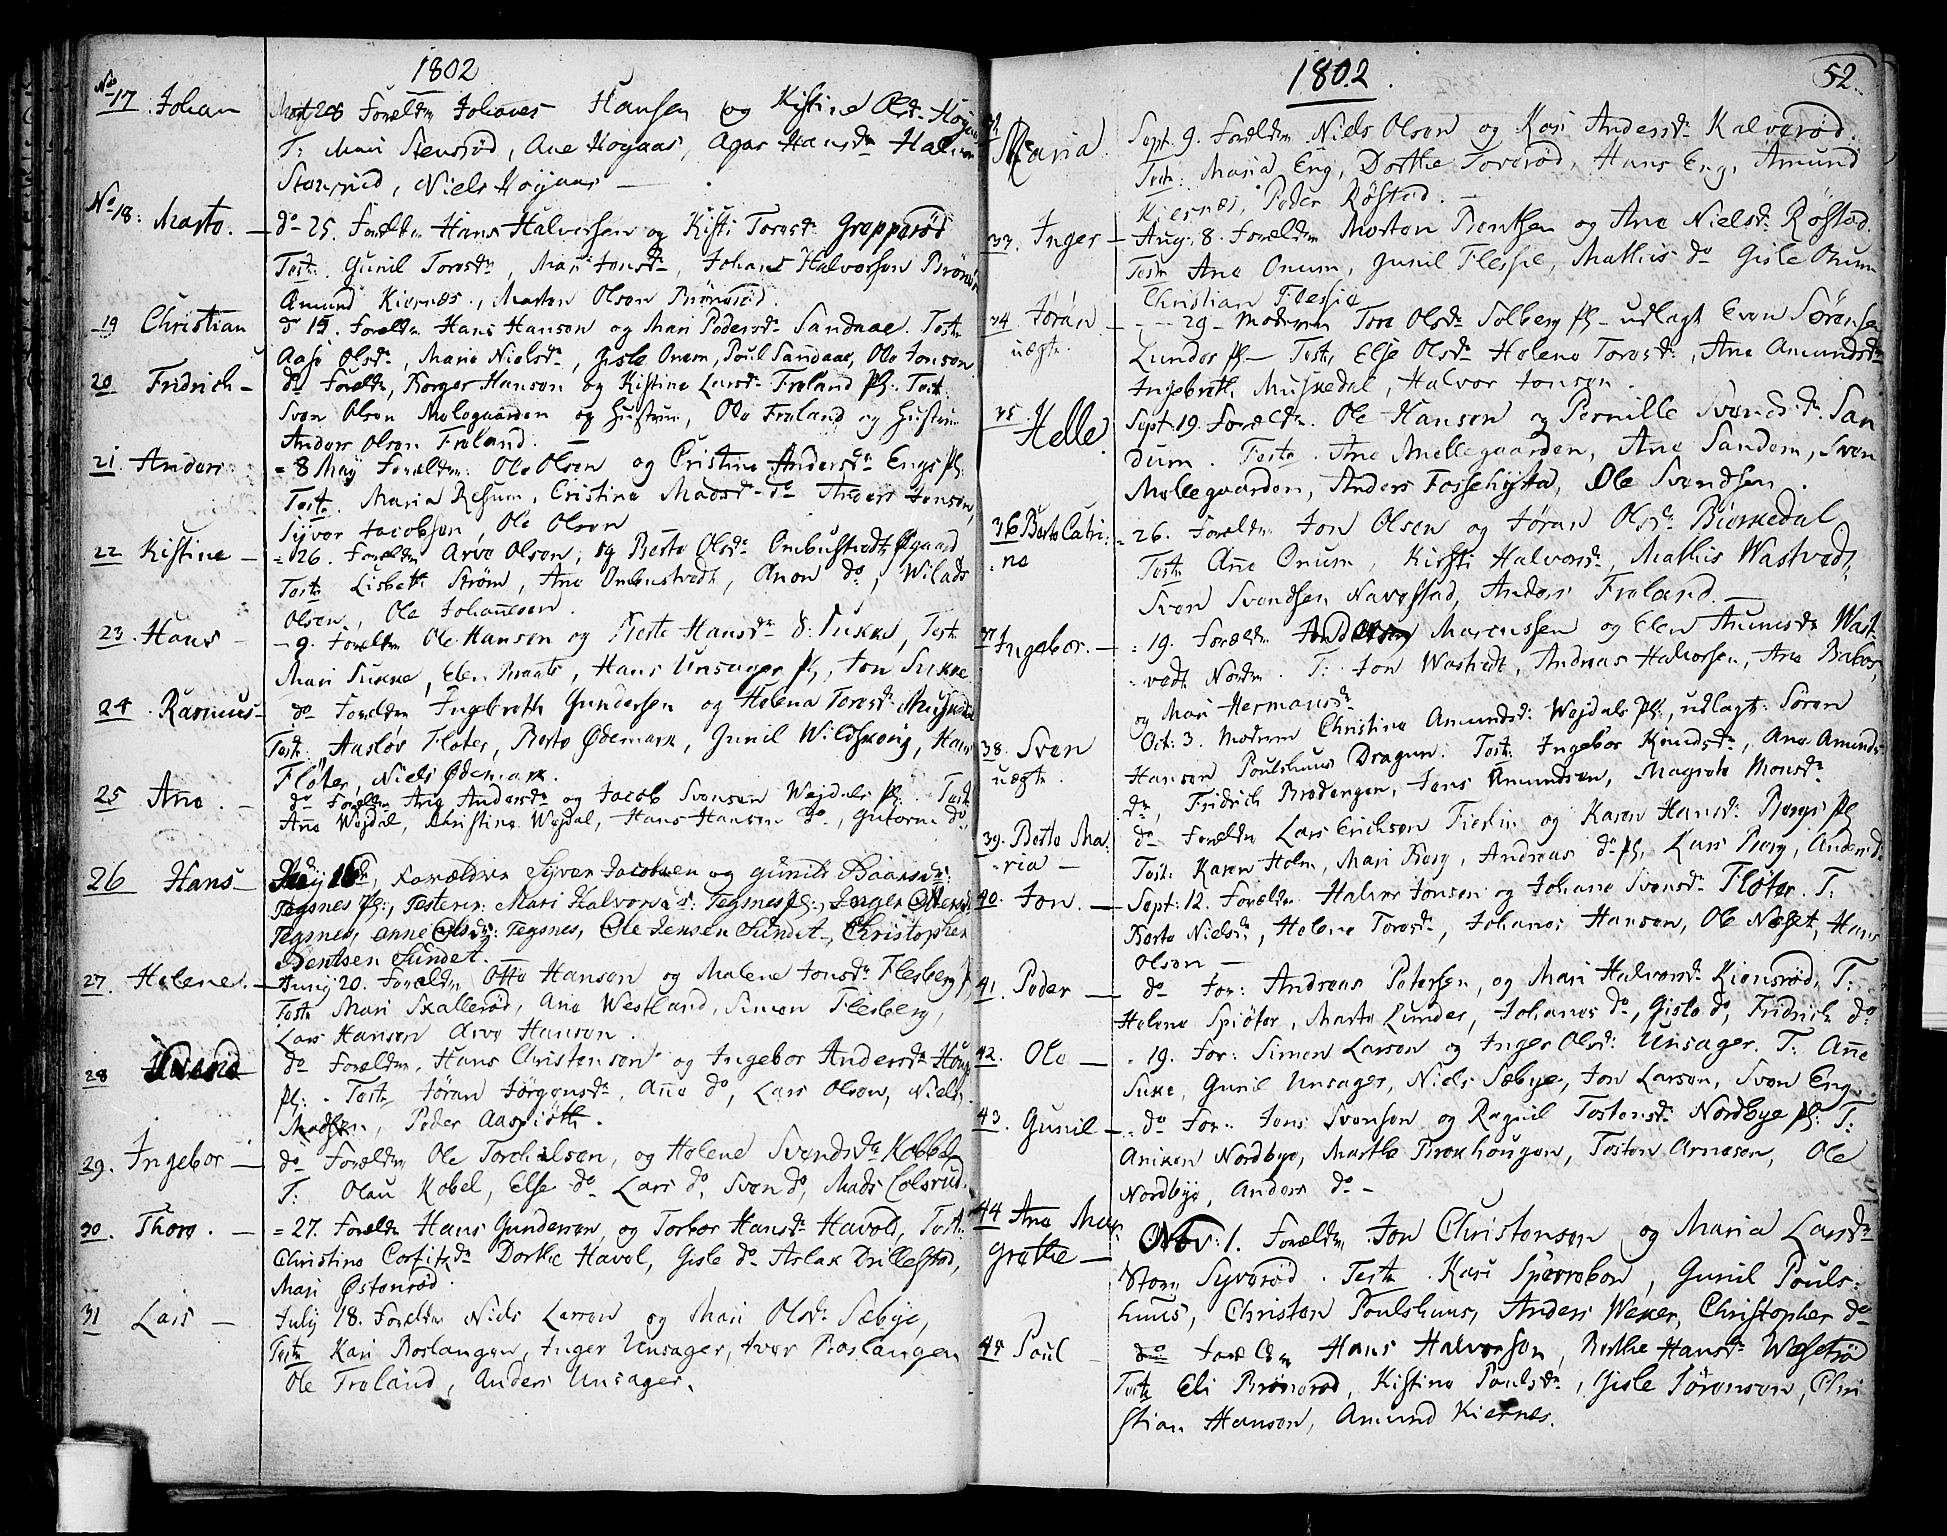 1802
No 17. Johan Forældre Johanes Hansen og Kistine Olsd.
T: Mari Stensrød, Ane Høyaas, Hansdr
Niels Høyaas
No 18: Marte. do 25. Forældre Hans Halvorsen og Kisti Torasdr Grepperød
Test: Gunil Torasdr, Mari Jonsdr, Johans Halvorsen
Amund Kiernes, Marten Olsen Brønerød.
19 Christian do 15. Foreldre Hans Hansen og Mari Pedersdr Sandaae. Teste
Aase Olsdr, Marie Nielsdr, Gisle Onum, Poul Sandaae, Ole Jonsen
20 Fridrich do Foreldre, Børger Hansen og Kistine Larsdr Froland pl: Test:
Sven Olsen Mølegaarden og Hustrue, Ole Froland og Hustrue
Anders Olsen Froland.
21. Anders = 8 May Forældre: Ole Olsen og Cristine Andersdr Engs pl:
Teste. Maria Resum, Cristine Madsdr do Anders Jensen,
Syver Jacobsen, Ole Olsen
22 Kistine = 26. Foreldre Arve Olsen, og Berte Olsdr Ombustvedt
Test: Lisbeth Strøm, Ane Ombustvedt, Anon do, Wilads
Olsen, Ole Johannesen.
23. Hans - 9. Foreldre Ole Hansen og Berte Hansdr Sukke, Teste
Mari Sukke, Elen Braate, Hans Unsager pl, Jon Sukke
24. Rasmus do Foreldre Ingebreth Gundersen og Helena Torasdr
Teste, Aasløv Fløter, Berte Ødemark, Gunil Wildskoug, Hans
Fløter, Niels Ødemark.
25 Ane. do Foreldre Ane Andersdr og Jacob Svensen Wejdals pl. Teste
Ane Wejdal, Christine Wejdal, Hans Hansen do, Gutorm do
26 Hans May 16de, Forældre Syver Jacobsen og Gunild
Tegsnes pl:, Testerer: Mari Halvorsd: Tegsnes pl:, Inger
Tegsnes, Anne Tegsnes, Ole Jensen Sundet, Christopher
Bentsen Sundet.
27. Helene. Juny 20. Foreldre Otto Hansen og Malene Jonsdr Flesberg pl
Teste Mari Skallerød, Ane Westland, Simen Flesberg,
Lars Hansen Arve Hansen.
28 do Foreldre, Hans Christensen og Ingebor Andersdr
pl: Teste Jøran Jørgensdr, Ane do, Lars Olsen, Niels
Madsen, Peder Aaspiøtte.
29. Ingebor do Foreldre Ole Torchilsen, og Helene Svendsdr Kobbel
T: Olau Kobel, Else do Lars do, Sven do, Mads Colsrud.
30. Thore. = 27. Foreldre Hans Gundersen, og Torbor Hansdr Havol, Teste
Christine Corfitzdr Dorthe Havol, Gisle do Aslak Drillestad,
Mari Østenrød.
31 Lars July 18. Foreldre Niels Larsen og Mari Olsdr Sæbye,
Teste Kari Boslangen, Inger Unsager, Iver Boslangen
Ole Froland, Anders Unsager.
1802. 52.
Maria. Sept. 9. Foreldre Niels Olsen og Kari Andersdr Kalverød.
Teste: Maria Eng, Dorthe Toverød, Hans Eng, Amund
Kiernes, Peder Røstad.
33. Inger Aug: 8. Foreldre Morten Bentsen og Ane Nielsdr Røstad
Teste Ane Onum, Gunil Flessie, Mathis do Gisle Onum
Christian Flessie
34 Jøran uægte. - 29 - Moderen Tore Olsdr Solberg pl - udlagt Even Sørense
Lunder pl - Teste Else Olsdr Helene Torasdr, Ane Amundsdr
Ingebreth Muskedal, Halvor Jonsen.
35. Helle. Sept: 19. Forældr. Ole Hansen og Pernille Svendsdr San
dum. Teste. Ane Møllegaarden, Ane Sandem, Sven
Møllegaarden, Anders Fossehytta, Ole Svendsen.
36 Berte Catri: 26. Foreldr. Jon Olsen og Jøran Olsdr Biørkedal
ne Teste Ane Onum, Kirsti Halvorsdr, Mathis Wastvedt,
Sven Svendsen Navestad, Anders Froland.
37 Ingebor. = 19. Foreldre Marcussen og Elen Wast-
vedt Nordre. T: Jon Wastvedt, Andreas Halvorsen, Ane
og Mari Hermansdr
38. Sven uægte. Oct: 3. Moderen Christine Amundsdr Wejdals pl:, udlagt: Søren
Hansen Poulshuus Dragun. Teste: Ingebor Knudsdr, Ane Amunds
dr, Fridrich Brødengen, Jens Amundsen, Magrete Monsdr
39. Berte Ma: do Foreldre Lars Erichsen og Karen Hansdr Borgs pl
ria Teste: Karen Holm, Mari Borg, Andreas do pl, Lars Borg, Anders do
40. Jon. Sept: 12. Foreldre Halvor Jonsen og Johane Svensdr Fløter. T:
Berte Nielsdr, Helene Torasdr, Johanes Hansen, Ole Næset, Hans
Olsen
41. Peder do For: Andreas Petersen, og Mari Halvorsdr Kiensrød, T:
Helene Spiøter, Marte Lunder, Johanes do, Gisle do, Fridrich do
42. Ole = 19. For: Simen Larsen og Inger Olsdr Unsager. T: Ane
Suke, Gunil Unsager, Niels Sæbye, Jon Larsen, Sven Eng
43. Gunil = do For: Jens Svensen og Ragnil Tostensdr Nordbye pl: T:
Aniken Nordbye, Marthe Brekhougen, Tosten Arnesen, Ole
Nordbye, Anders do
44 Ane Mar: Nov: 1. Forældre Jon Christensen og Maria Larsdr
grethe Store Syverød. Teste Kari Sperrebøn, Gunil Pouls-
huus, Christen Poulshuus, Anders Weker, Christopher do
45 Poul do Foreldre Hans Halvorsen, Berthe Hansdr
Teste Eli Brønerød, Kistine Poulsdr, Gisle Sørensen, Chri
stian Hansen, Amund Kiernes.